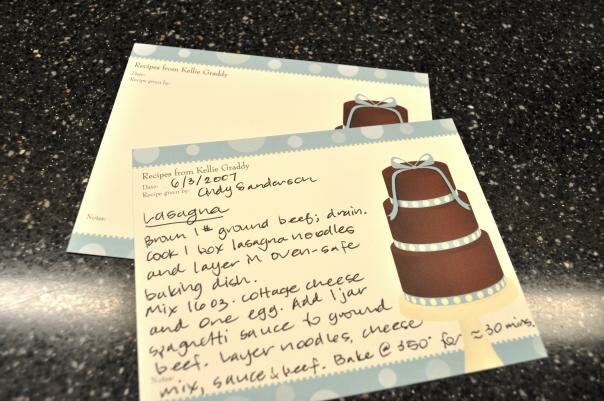 Recipes from Kellie Graddy
Date:
Recipe given by:
Notes:
Recipes from Kellie Graddy
Date: 6/3/2007
Recipe given by: Andy Sanderson
Lasagna
Brown 1# ground beef; drain.
Cook 1 box lasagna noodles
and layer in oven-safe
baking dish.
Mix 16 oz. cottage cheese
and one egg. Add 1 jar
spaghetti sauce to ground
beef. Layer noodles, cheese
mix, sauce & beef. Bake @ 350° for ≈ 30 mins.
Notes: